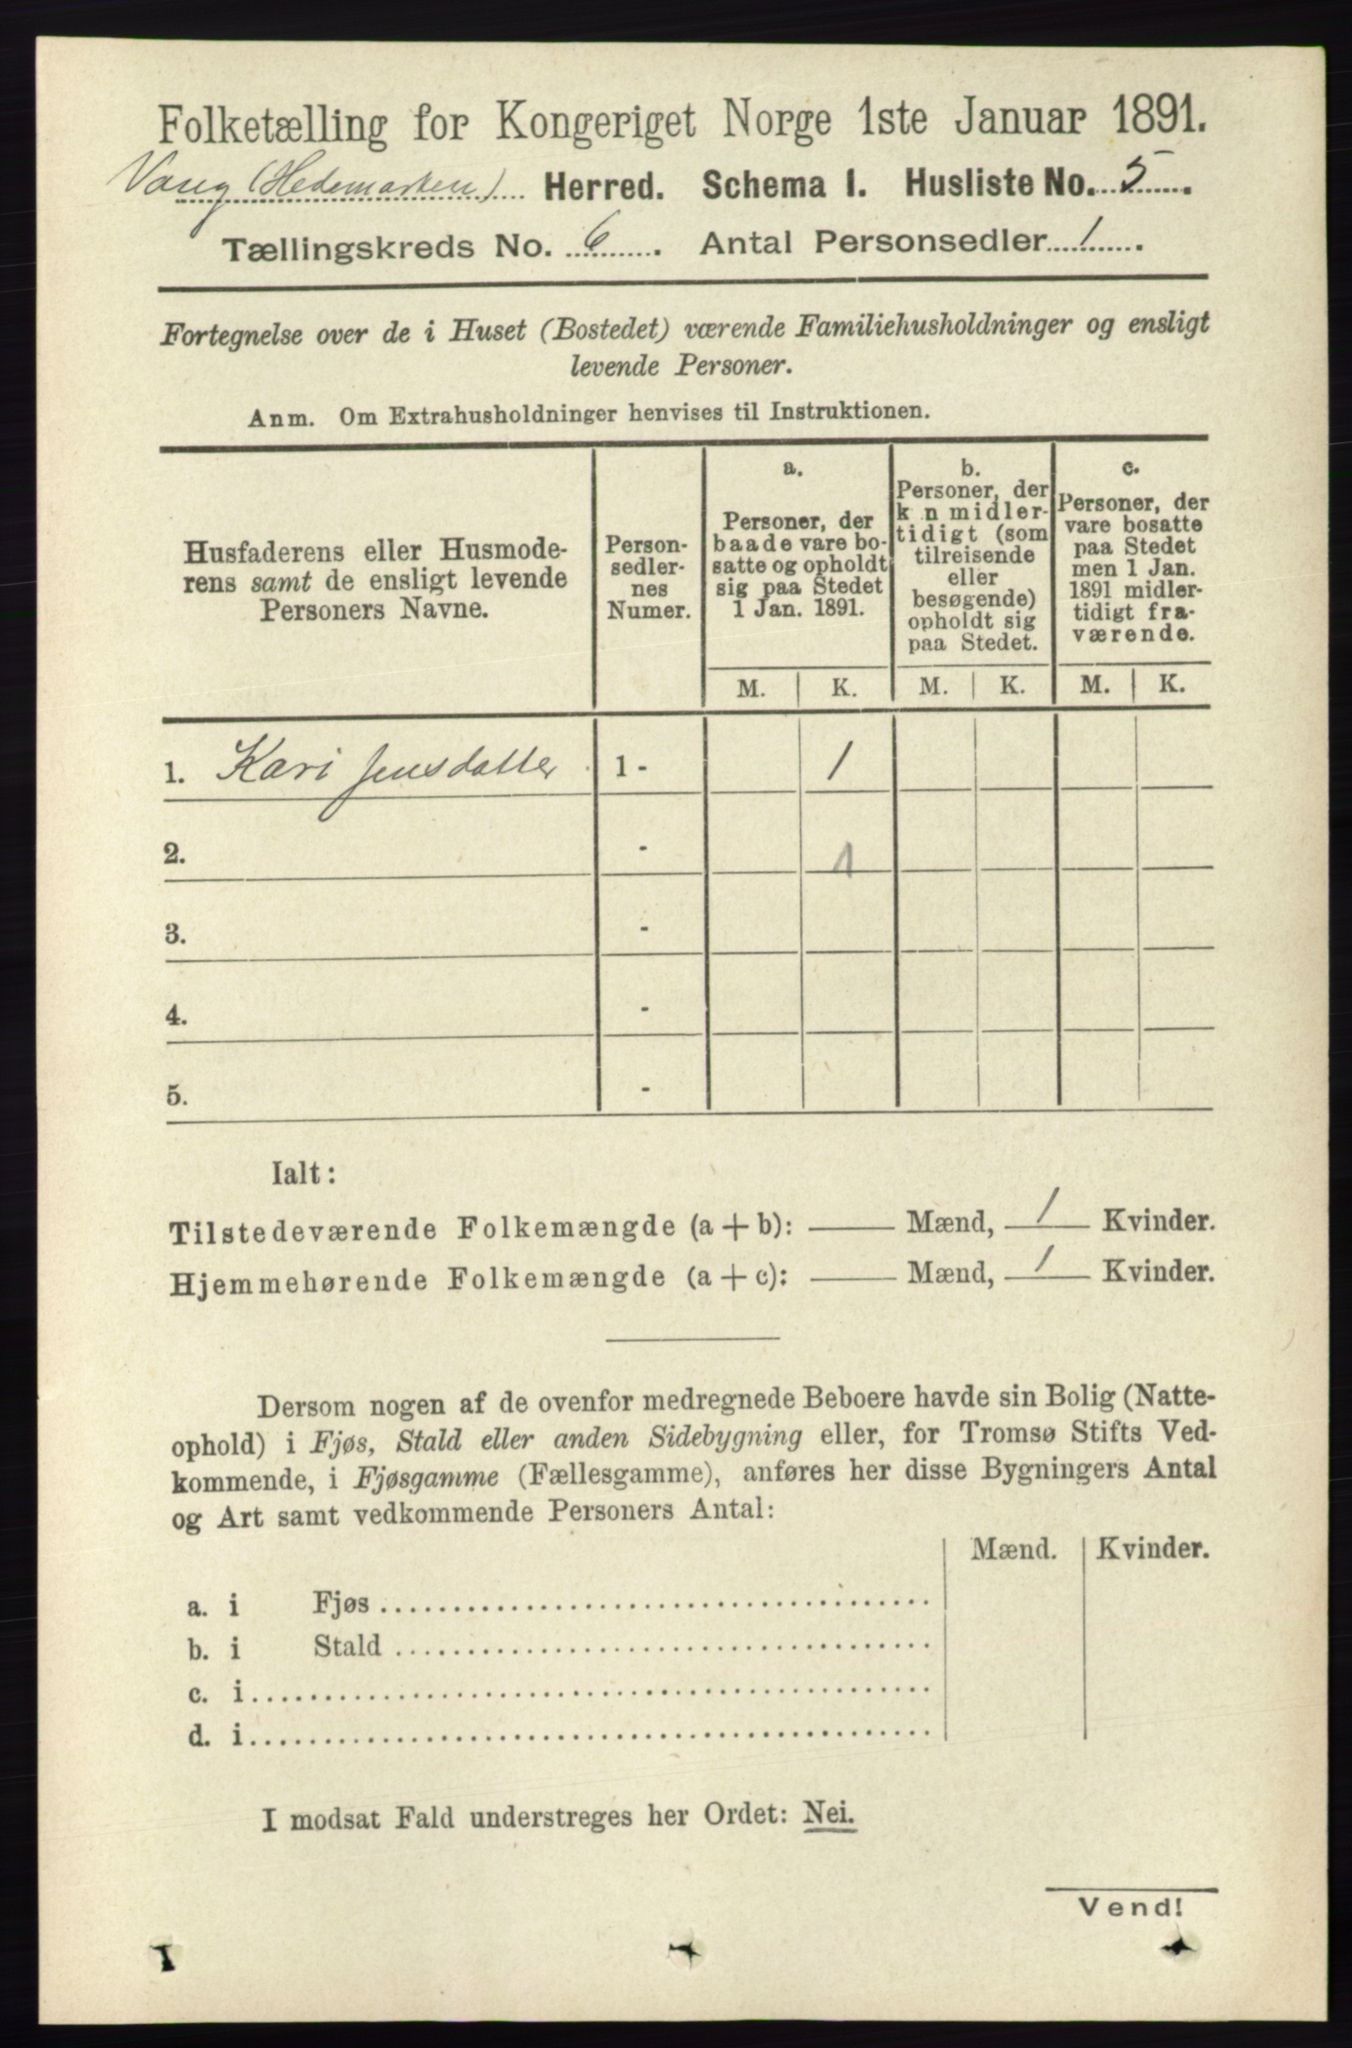 Folketælling for Kongeriget Norge 1ste Januar 1891.
Vang (Hedemarken) Herred. Schema I. Husliste No. 5.
Tællingskreds No. 6. Antal Personsedler 1.
Fortegnelse over de i Huset (Bostedet) værende Familiehusholdninger og ensligt
levende Personer.
Anm. Om Extrahusholdninger henvises til Instruktionen.
Husfaderens eller Husmode-
rens samt de ensligt levende
Personers Navne.
Person-
sedler-
nes
Numer.
a.
Personer, der
baade vare bo-
satte og opholdt
sig paa Stedet
1 Jan. 1891.
b.
Personer, der
k n midler-
tidigt (som
tilreisende
eller
besøgende)
opholdt sig
paa Stedet.
c.
Personer, der
vare bosatte
paa Stedet
men 1 Jan.
1891 midler-
tidigt fra-
værende.
M. K. M. K. M. K.
1. Kari Jensdatter 1 - 1
2. - 1
3. -
4. -
5. -
Ialt:
Tilstedeværende Folkemængde (a + b): — Mænd, 1 Kvinder.
Hjemmehørende Folkemængde (a + c): — Mænd, 1 Kvinder.
Dersom nogen af de ovenfor medregnede Beboere havde sin Bolig (Natte-
ophold) i Fjøs, Stald eller anden Sidebygning eller, for Tromsø Stifts Ved-
kommende, i Fjøsgamme (Fællesgamme), anføres her disse Bygningers Antal
og Art samt vedkommende Personers Antal:
Mænd. Kvinder.
a. i Fjøs
b. i Stald
c. i
d. i
I modsat Fald understreges her Ordet: Nei.
Vend!